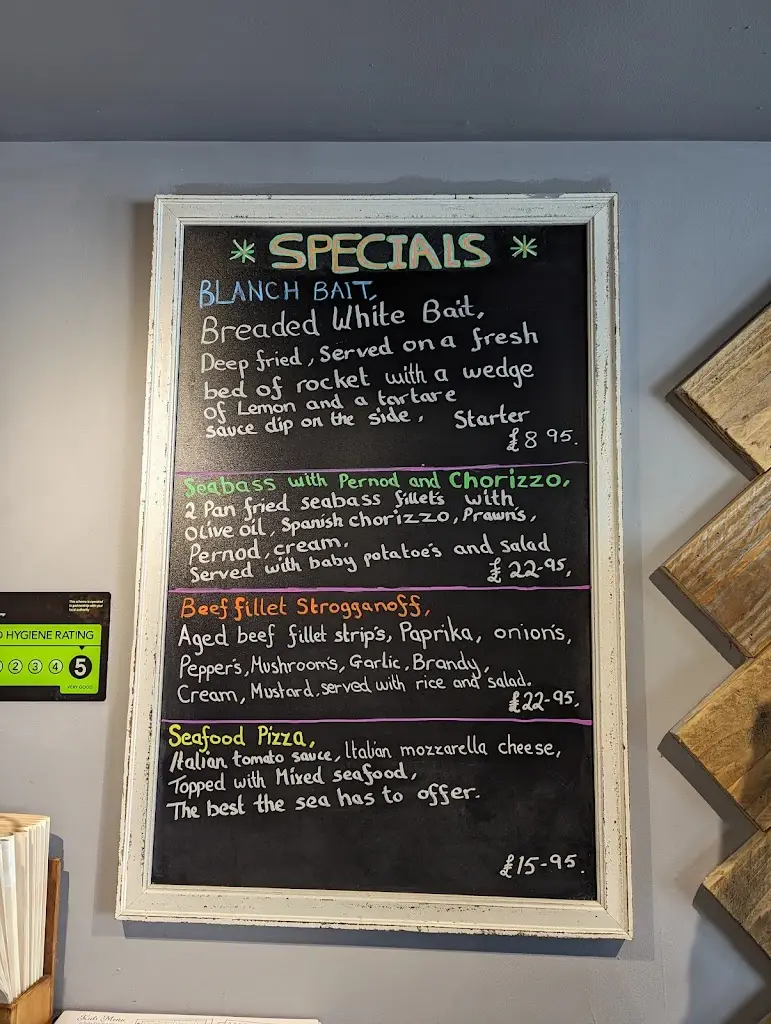 * SPECIALS *
BLANCH BAIT,
Breaded White Bait,
Deep fried, Served on a fresh
bed of rocket with a wedge
of Lemon and a tartare
sauce dip on the side. Starter
£8 95.
Seabass with Pernod and Chorizzo,
2 Pan fried seabass fillet's with
Olive oil, Spanish chorizzo, Prawn's,
Pernod, cream.
Served with baby potatoe's and salad
£22-95,
Beef fillet Strogganoff,
Aged beef fillet strip's, Paprika, onion's,
Pepper's, Mushroom's, Garlic, Brandy,
Cream, Mustard. served with rice and salad.
£22-95.
Seafood Pizza,
Italian tomato sauce, Italian mozzarella cheese,
Topped with Mixed seafood,
The best the sea has to offer.
£15-95.
HYGIENE RATING
2 3 4 5
VERY GOOD
Kids Menu